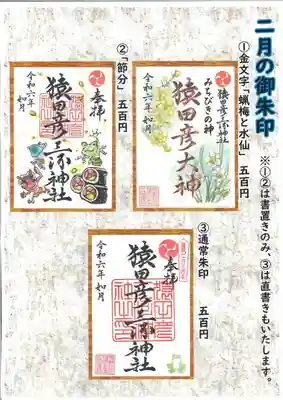 二月の御朱印
①金文字「蝋梅と水仙」 五百円
※①②は書置きのみ、③は直書きもいたします。
猿田彦三河神社
みちびきの神
猿田彦大神
令和六年 如月
②「節分」 五百円
奉拝
猿田彦三河神社
令和六年 如月
③通常朱印 五百円
奉拝
猿田彦三河神社
令和六年 如月